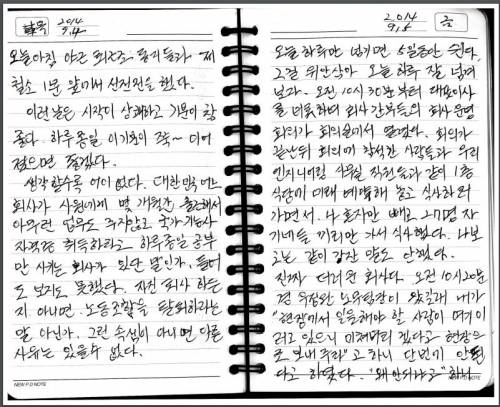 木 2014 9.4
오늘아침 야근 퇴근조 동지들과 제
철소 1문 앞에서 선전전을 했다.
이런 날은 시작이 상쾌하고 기분이 참
좋다. 하루종일 이 기분이 죽~ 이어
졌으면 좋겠다.
생각할수록 어이 없다. 대한민국 어느
회사가 사원에게 몇 개월간 출근해서
아무런 업무도 주지않고 국가기능사
자격증 취득하라고 하루종일 공부
만 시키는 회사가 있단 말인가. 들어
도 보지도 못했다. 자진 퇴사 하든
지 아니면 노동조합을 탈퇴하라는
말 아닌가. 그런 속셈이 아니면 다른
사유는 있을수 없다.
NEW P.D NOTE
2014 9.5 금
오늘 하루만 넘기면 5일동안 쉰다.
그걸 위안삼아 오늘 하루 잘 넘겨
보자. 오전 10시 30분부터 대표이사
를 비롯하여 회사 간부들의 회사 운영
회의가 회의실에서 열렸다. 회의가
끝난뒤 회의에 참석한 사람들과 우리
엔지니어링 사무실 직원들과 같이 1층
식당에 미리 예약해 놓고 식사하러
가면서. 나 혼자만 빼고 그기명 자
기네들 끼리만 가서 식사했다. 나보
고는 같이 가잔 말도 안했다.
진짜 더러운 회사다. 오전 10시20분
경 우정된 노무팀장이 왔길래 내가
"현장에서 일을해야 할 사람이 여기 이
러고 있으니 미쳐버리 겠다고 현장으
로 보내 주라"고 하니 단번에 안된
다고 하였다. "왜 안되냐고" 하니
NEW P.D NOTE